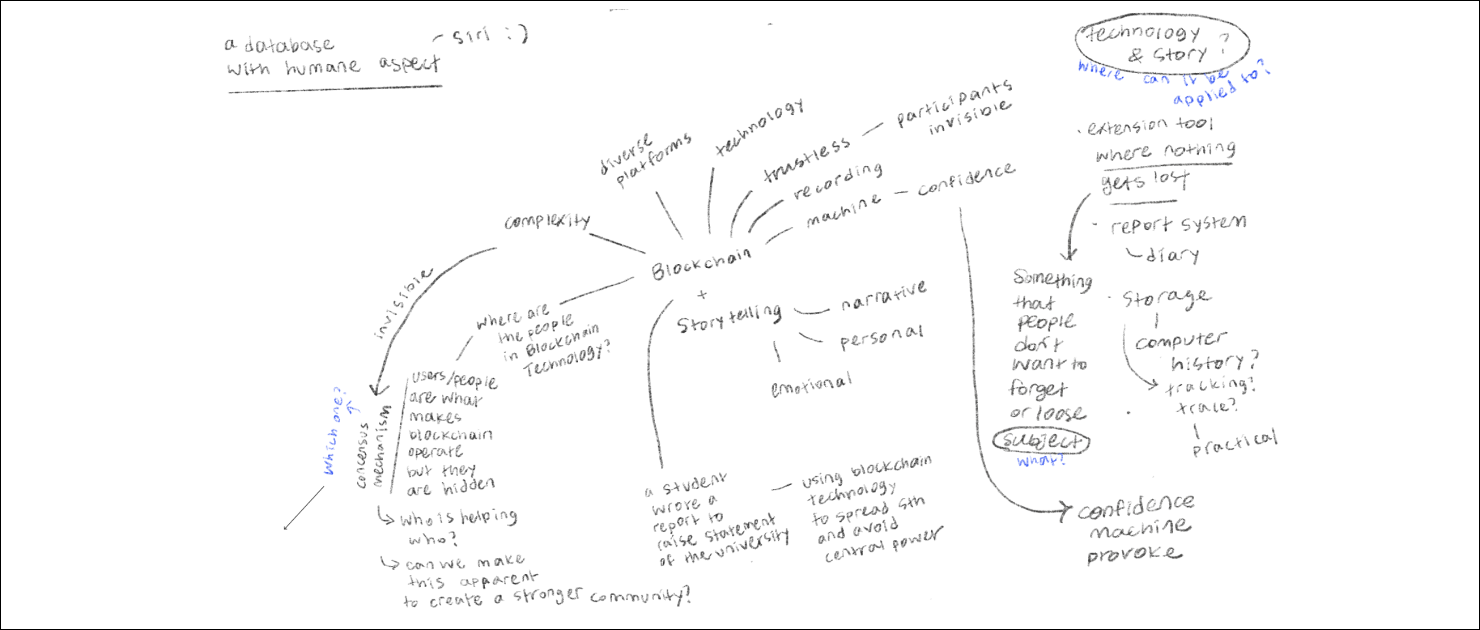 a database
with humane aspect
- siri :)
technology
& story ?
where can it be
applied to?
· extension tool
where nothing
gets lost
· report system
diary
· storage
computer
history?
tracking?
trace?
practical
Something
that
people
don't
want to
forget
or loose
subject
what?
diverse
platforms
technology
trustless
participants
invisible
recording
machine
confidence
complexity
Blockchain
+
Storytelling
narrative
personal
emotional
invisible
where are
the people
in Blockchain
Technology?
users/people
are what
makes
blockchain
operate
but they
are hidden
which one?
concensus
mechanism
who is helping
who?
can we make
this apparent
to create a stronger community?
a student
wrote a
report to
raise statement
of the university
using blockchain
technology
to spread sth
and avoid
central power
confidence
machine
provoke